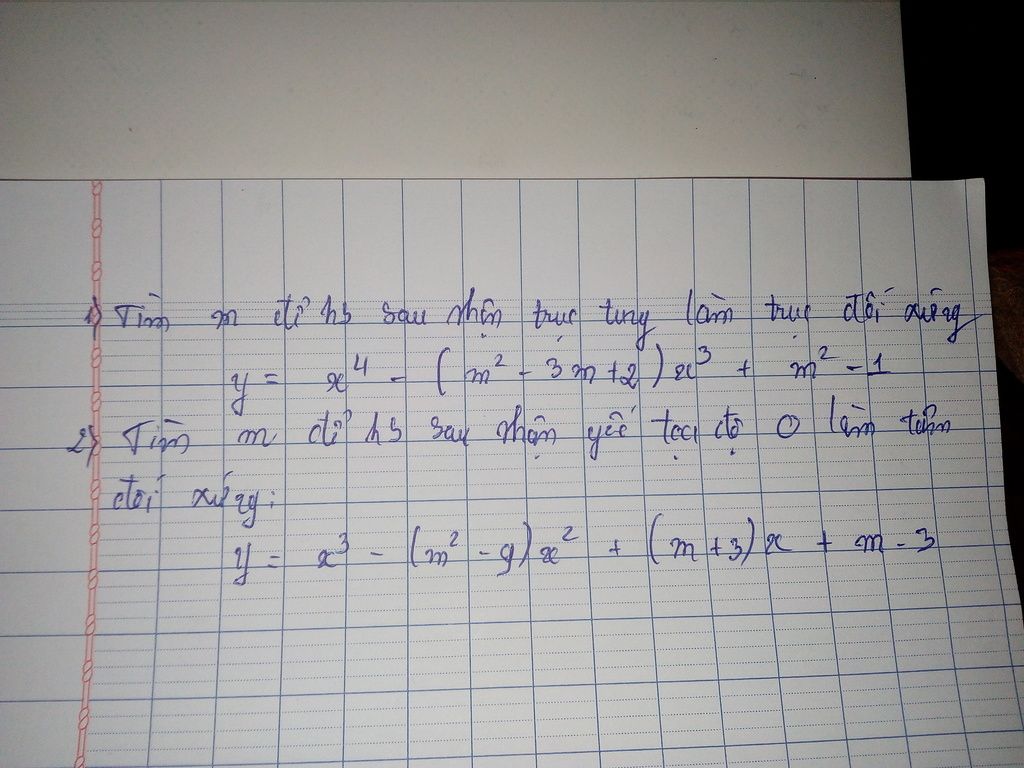 1) Tìm m để hs sau nhận trục tung làm trục đối xứng
y = x⁴ - (m² - 3m + 2)x³ + m² - 1
2) Tìm m để hs sau nhận gốc tọa độ O làm tâm
đối xứng:
y = x³ - (m² - 9)x² + (m + 3)x + m - 3